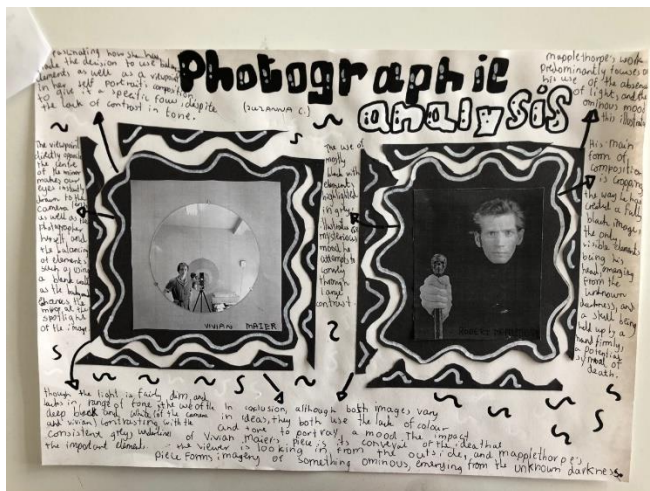 Photographic
analysis
(SUZANNA C.)
fascinating how she has
made the decision to use balancing
elements as well as a viewpoint
in her self portrait's composition,
to give it a specific focus despite
the lack of contrast in tone.
The viewpoint
directly opposite
the centre
of the mirror
makes our
eyes instantly
drawn to the
camera
as well as the
photographer
herself, and
the balancing
of elements
such as using
a blank wall
as the background
shares the
mirror as the
spotlight
of the image.
VIVIAN MAIER
The use of
mostly
black with
elements
highlighted
in grey
illustrates a
mysterious
mood, he
attempts to
convey
through
large
contrast.
mapplethorpe's work
predominantly focuses on
his use of the absence
of light, and the
ominous mood
this illustrates
His main
form of
composition
is cropping
the way he has
created a fully
black image
the only
visible elements
being his
head, emerging
from the
unknown
darkness, and
a skull being
held up by a
hand firmly,
a potential
symbol of
death.
though the light is fairly dim, and
lacks in range of tone, the use of the
deep black and white (of the camera
and vivian) contrasting with the
consistent greys
the important elements.
In conclusion, although both images vary
in ideas, they both use the lack of colour
and tone to portray a mood. The impact
of Vivian Maier's piece is its conveyal of the idea that
the viewer is looking in, from the outside, and mapplethorpe's
piece forms imagery of something ominous, emerging from the unknown darkness.